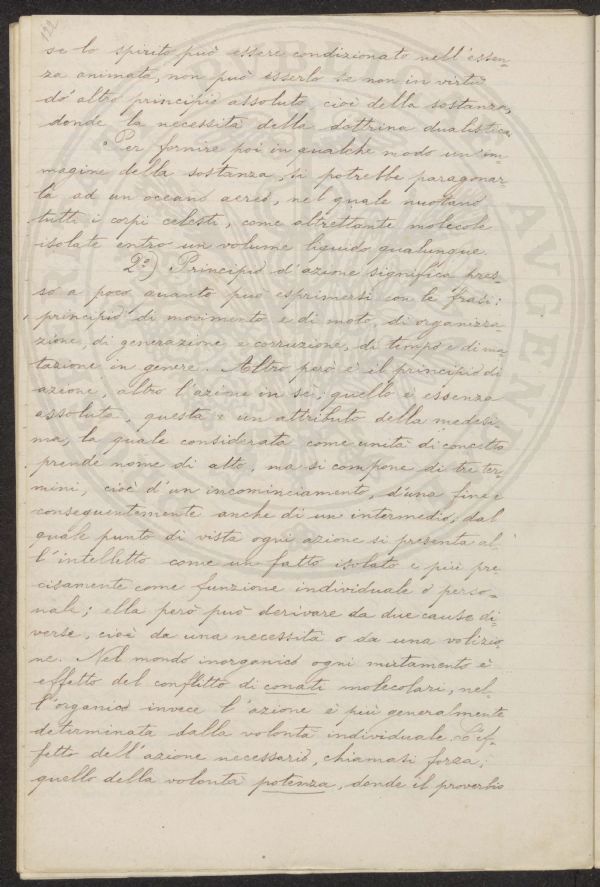 122
se lo spirito può essere condizionato nell'essen-
za animata, non può esserlo se non in virtù
d'altro principio assoluto cioè della sostanza,
donde la necessità della dottrina dualistica.
Per fornire poi in qualche modo un'im-
magine della sostanza, si potrebbe paragonar-
la ad un oceano aereo, nel quale nuotano
tutti i corpi celesti, come altrettante molecole
isolate entro un volume liquido qualunque.
2º) Principio d'azione significa pres-
so a poco quanto può esprimersi con le frasi:
principio di movimento e di moto, di organizza-
zione, di generazione e corruzione, di tempo e di mu-
tazione in genere. Altro però è il principio di
azione, altro l'azione in sé; quello è essenza
assoluta, questa è un attributo della medesi-
ma, la quale considerata come unità di concetto
prende nome di atto, ma si compone di tre ter-
mini, cioè d'un incominciamento, d'una fine e
conseguentemente anche di un intermedio; dal
quale punto di vista ogni azione si presenta al-
l'intelletto come un fatto isolato e più pre-
cisamente come funzione individuale o perso-
nale; ella però può derivare da due cause di-
verse, cioè da una necessità o da una volizio-
ne. Nel mondo inorganico ogni mutamento è
effetto del conflitto di conati molecolari, nel-
l'organico invece l'azione è più generalmente
determinata dalla volontà individuale. L'ef-
fetto dell'azione necessario, chiamasi forza;
quello della volontà potenza, donde il proverbio
PVBL
AVGENT